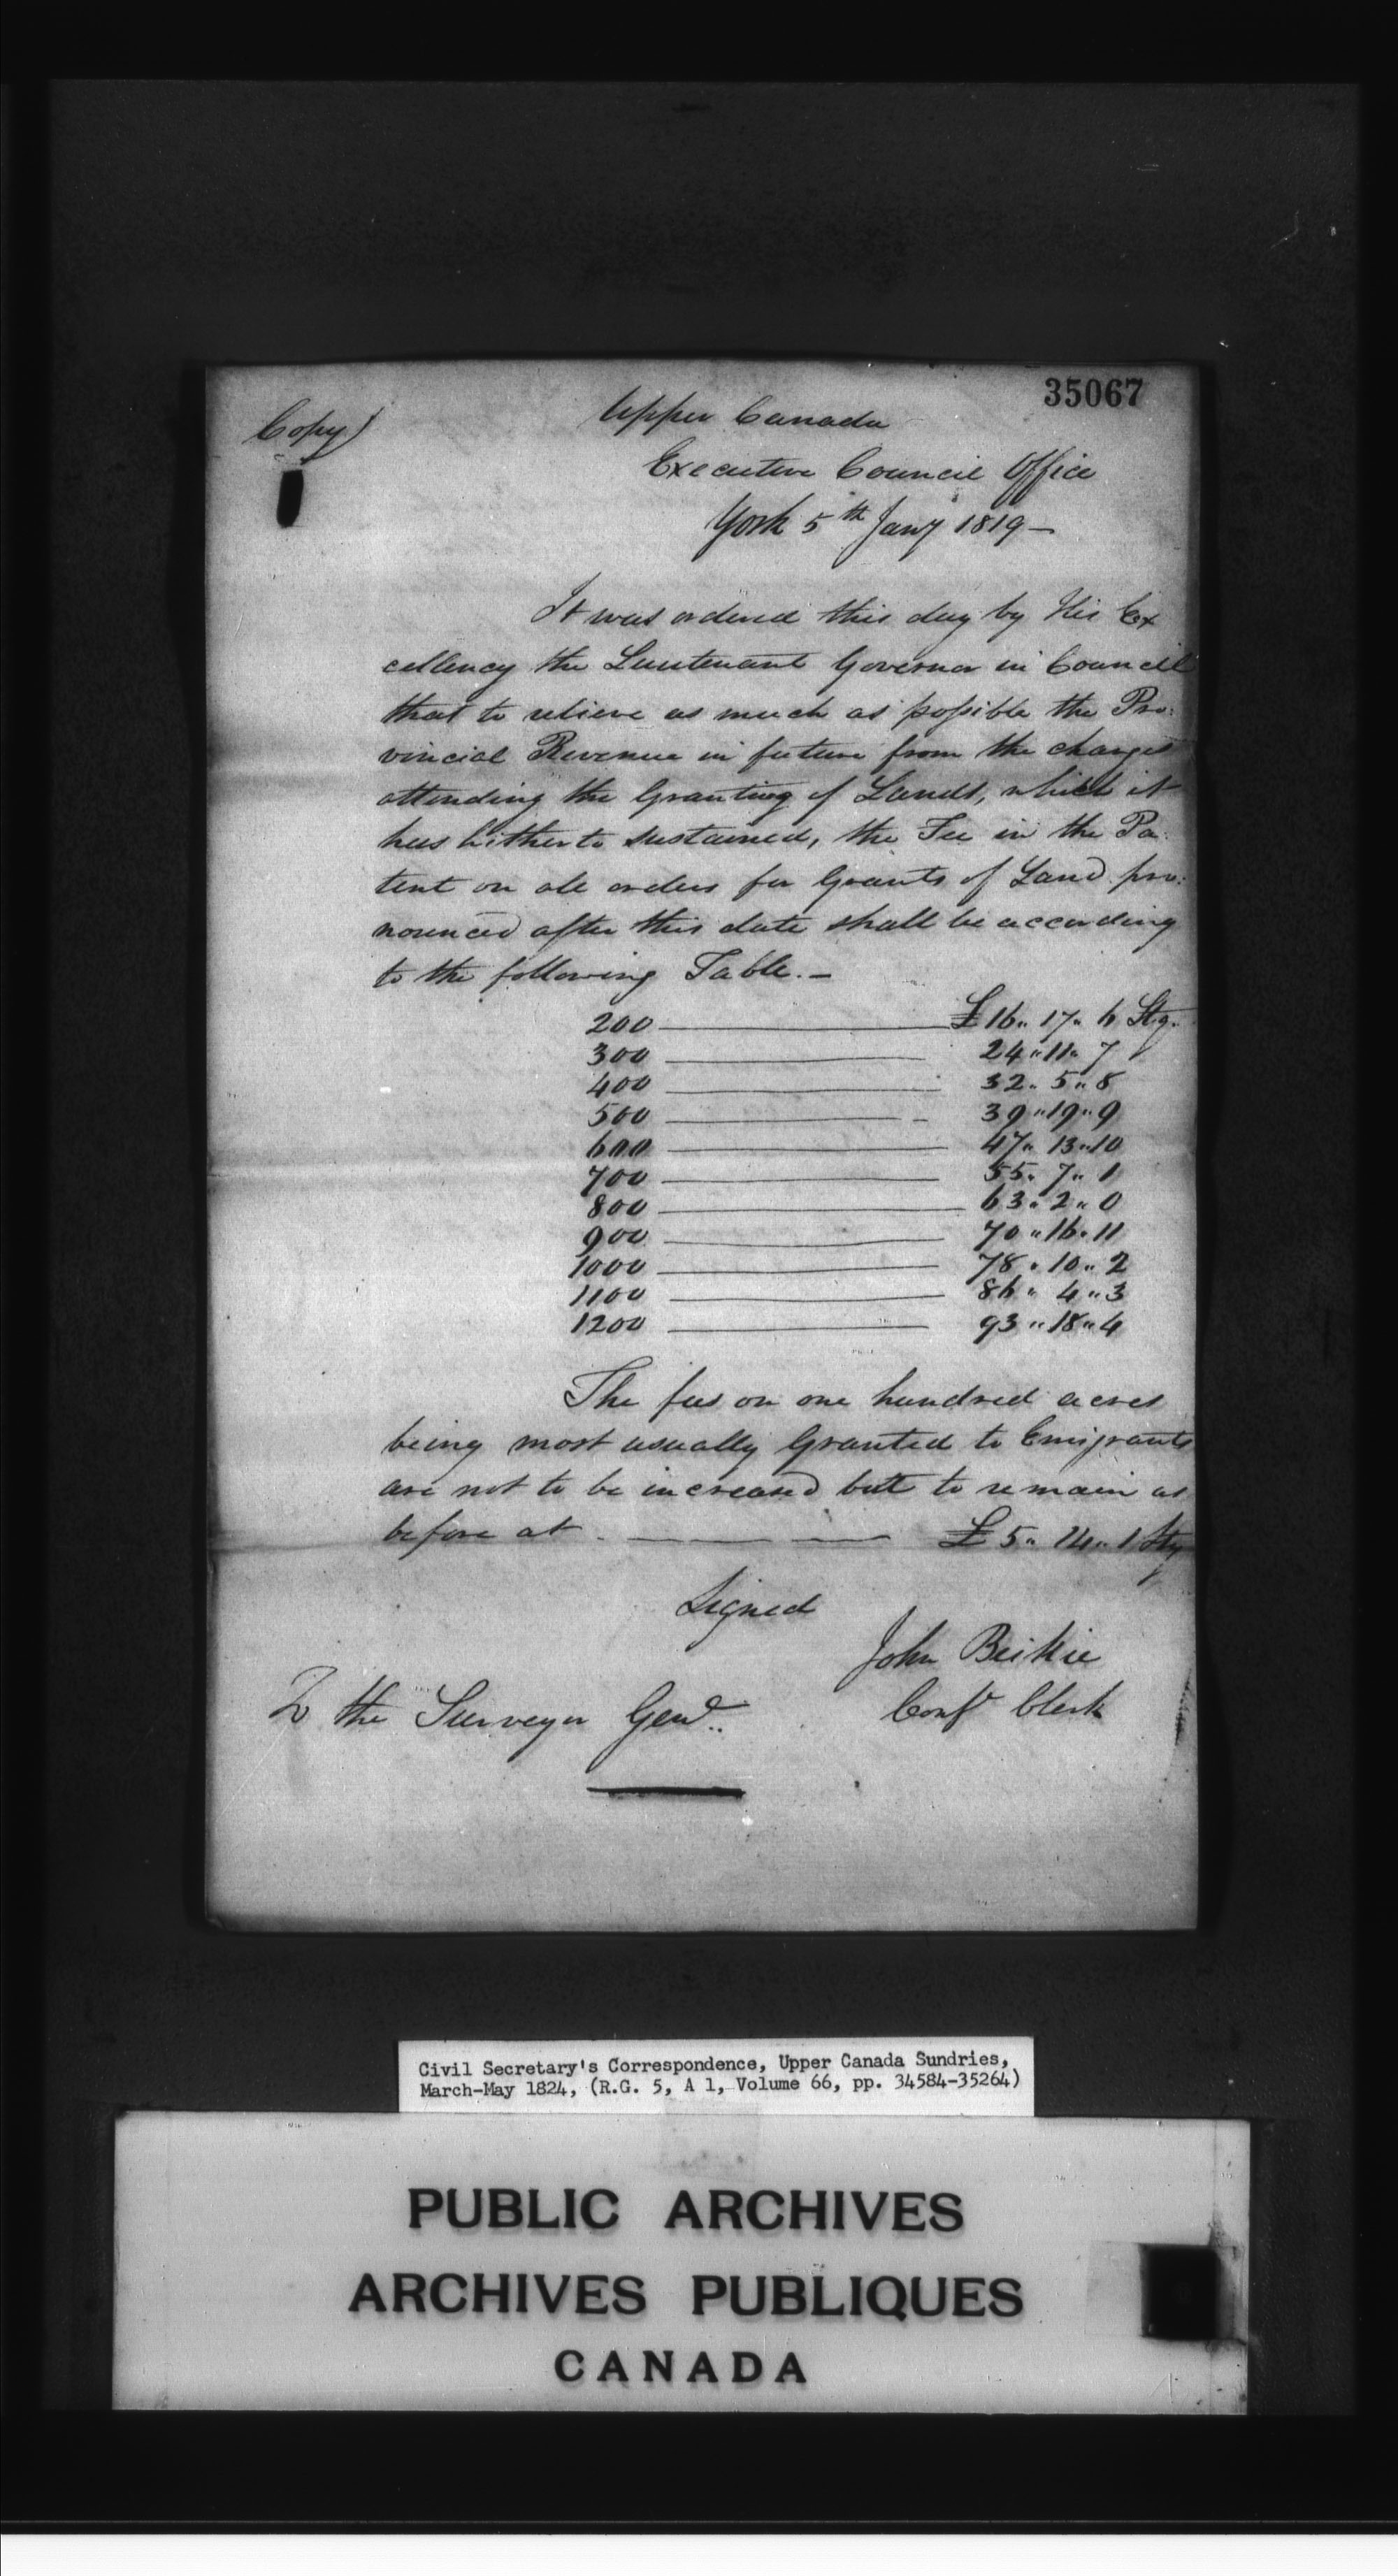 35067
Copy)
Upper Canada
Executive Council Office
York 5th Jany 1819 —
It was ordered this day by His Ex
cellency the Lieutenant Governor in Council
that to relieve as much as possible the Pro:
vincial Revenue in future from the charges
attending the Granting of Lands, which it
has hitherto sustained, the Fee in the Pa:
tent on all orders for Grants of Land pro:
nounced after this date shall be according
to the following Table. —
200 £ 16 " 17 " 6 Stg.
300 24 " 11 " 7
400 32 " 5 " 8
500 39 " 19 " 9
600 47 " 13 " 10
700 55 " 7 " 1
800 63 " 2 " 0
900 70 " 16 " 11
1000 78 " 10 " 2
1100 86 " 4 " 3
1200 93 " 18 " 4
The fees on one hundred acres
being most usually Granted to Emigrants
are not to be increased but to remain as
before at £ 5 " 14 " 1 Stg
Signed
John Beikie
Confl Clerk
To the Surveyor Genl.
Civil Secretary's Correspondence, Upper Canada Sundries,
March-May 1824, (R.G. 5, A 1, Volume 66, pp. 34584-35264)
PUBLIC ARCHIVES
ARCHIVES PUBLIQUES
CANADA